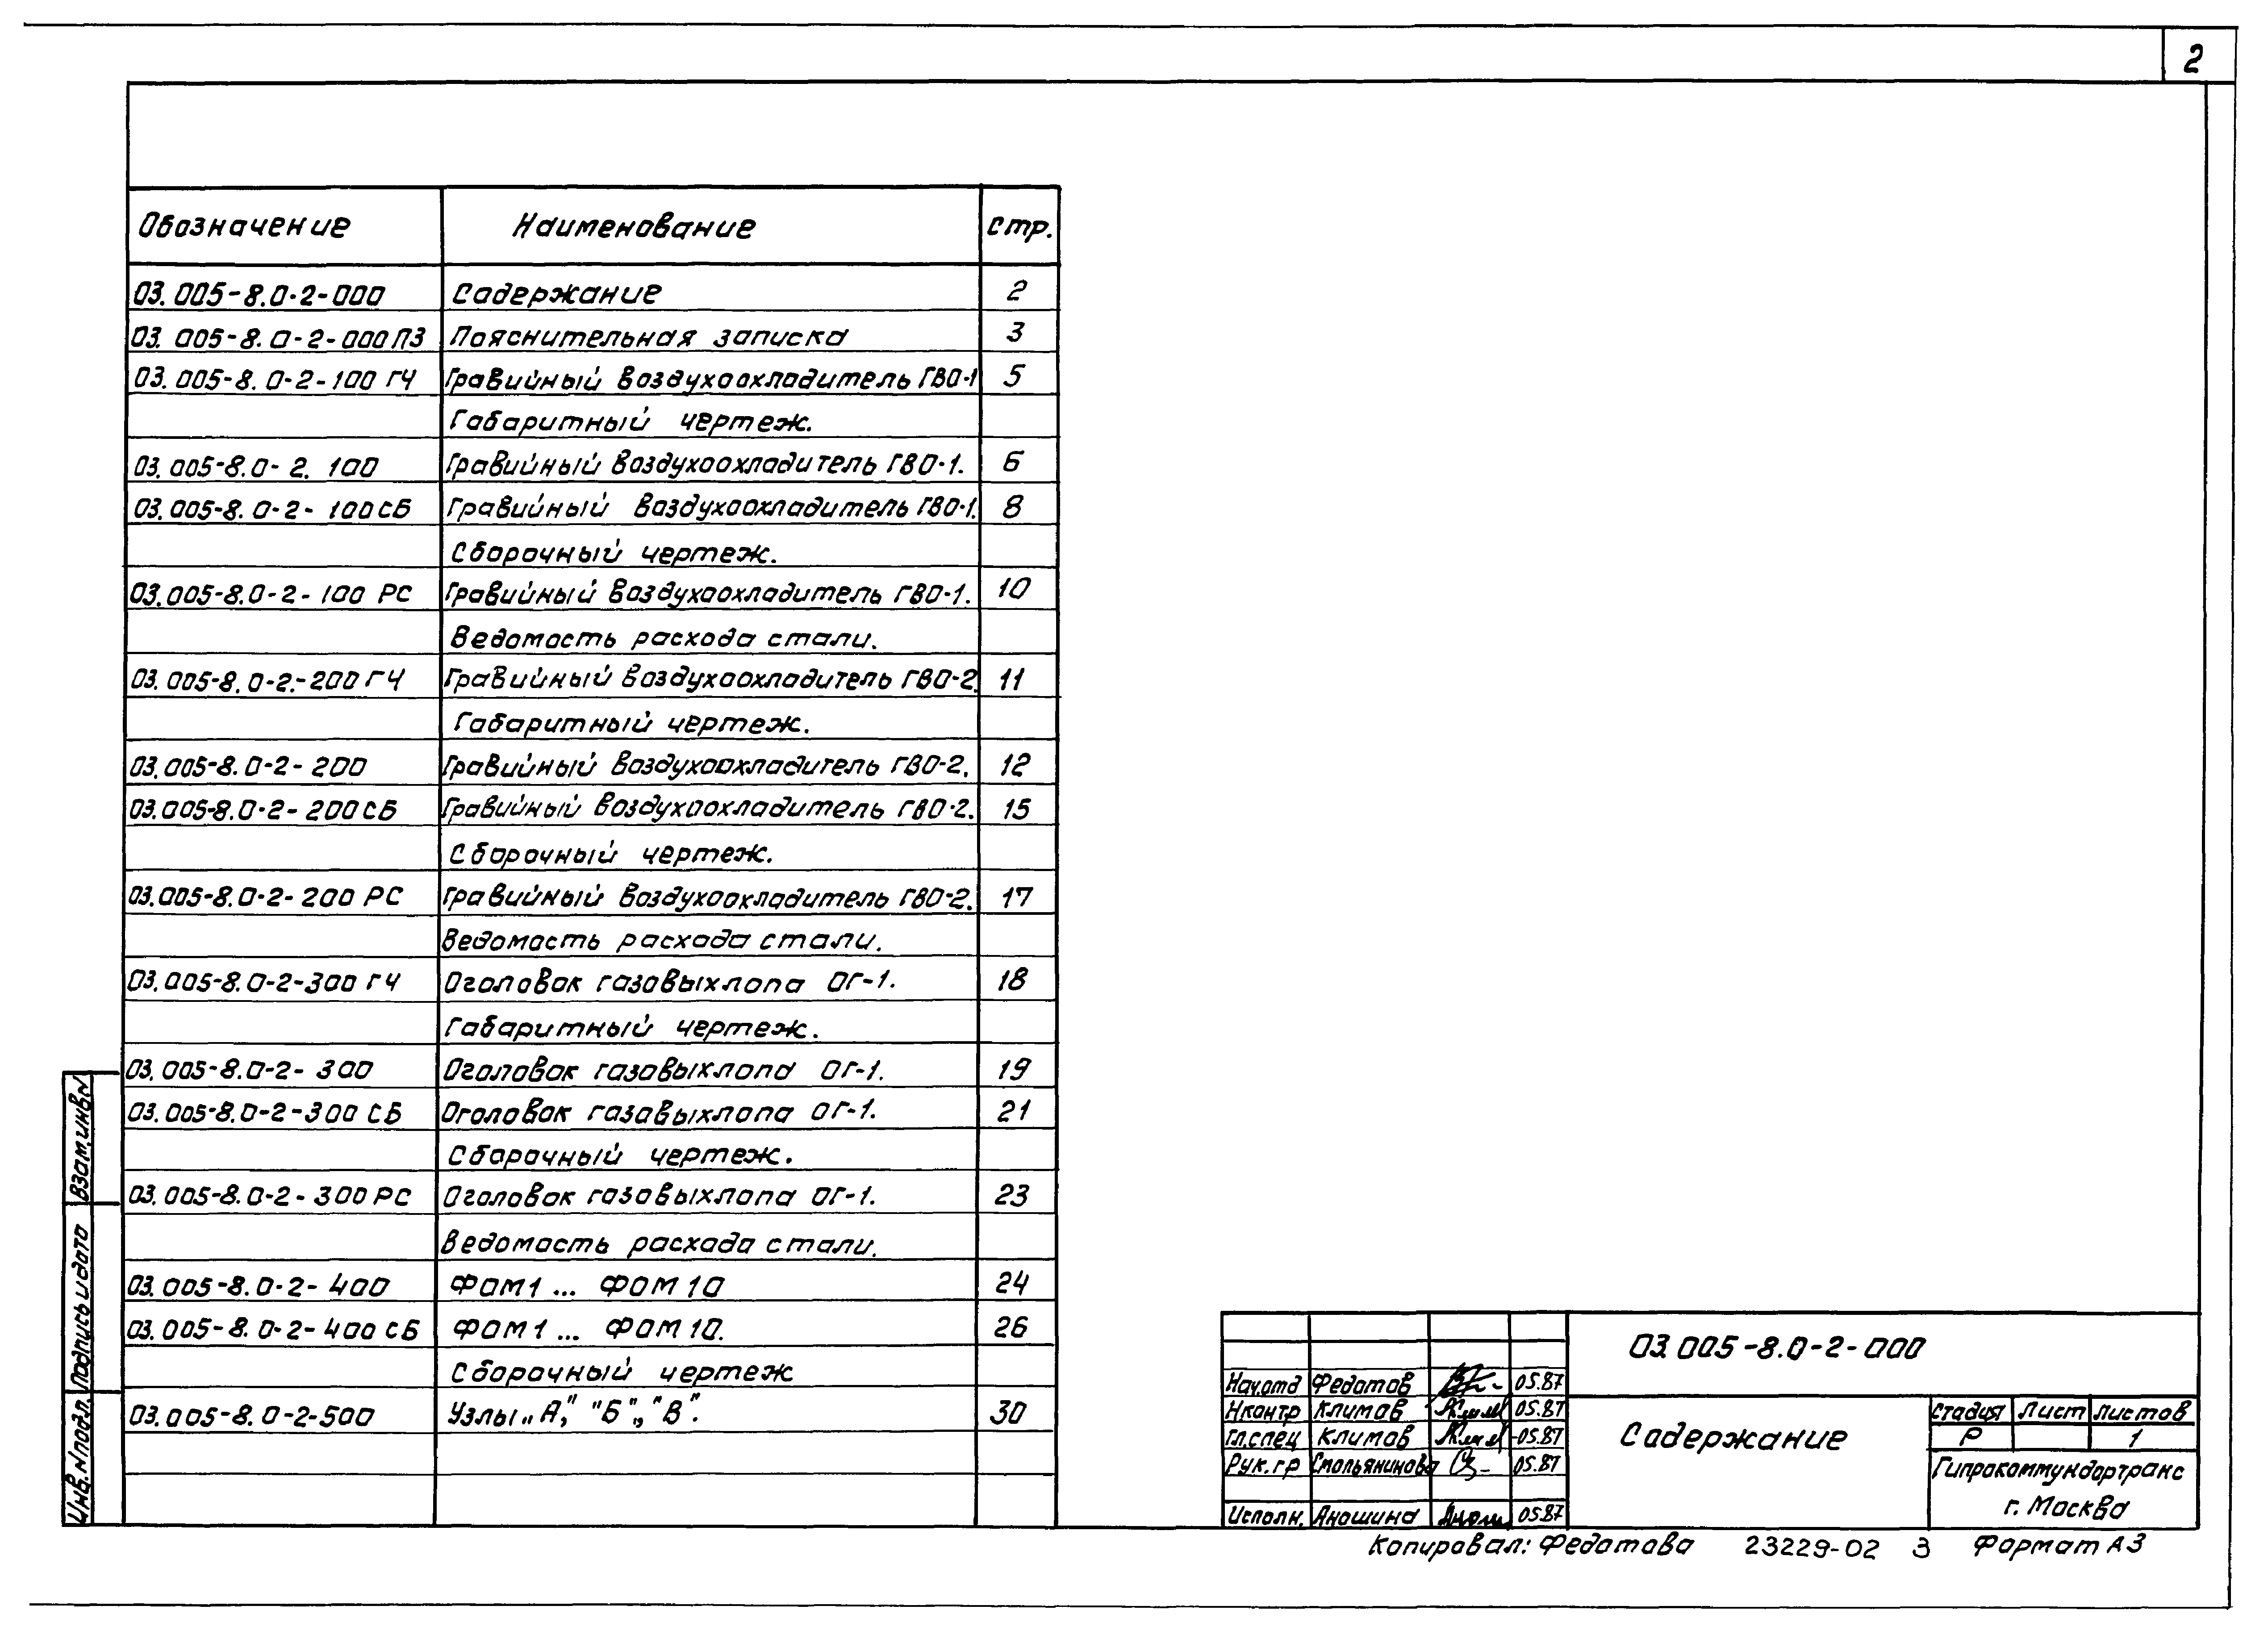 2
Обозначение Наименование стр.
03.005-8.0-2-000 Содержание 2
03.005-8.0-2-000ПЗ Пояснительная записка 3
03.005-8.0-2-100 ГЧ Гравийный воздухоохладитель ГВО-1 5
Габаритный чертеж.
03.005-8.0-2.100 Гравийный воздухоохладитель ГВО-1. 6
03.005-8.0-2-100СБ Гравийный воздухоохладитель ГВО-1. 8
Сборочный чертеж.
03.005-8.0-2-100 РС Гравийный воздухоохладитель ГВО-1. 10
Ведомость расхода стали.
03.005-8.0-2.-200 ГЧ Гравийный воздухоохладитель ГВО-2. 11
Габаритный чертеж.
03.005-8.0-2-200 Гравийный воздухоохладитель ГВО-2. 12
03.005-8.0-2-200СБ Гравийный воздухоохладитель ГВО-2. 15
Сборочный чертеж.
03.005-8.0-2-200 РС Гравийный воздухоохладитель ГВО-2. 17
Ведомость расхода стали.
03.005-8.0-2-300 ГЧ Оголовок газовыхлопа ОГ-1. 18
Габаритный чертеж.
03.005-8.0-2-300 Оголовок газовыхлопа ОГ-1. 19
03.005-8.0-2-300 СБ Оголовок газовыхлопа ОГ-1. 21
Сборочный чертеж.
03.005-8.0-2-300 РС Оголовок газовыхлопа ОГ-1. 23
Ведомость расхода стали.
03.005-8.0-2-400 ФОМ1... ФОМ10 24
03.005-8.0-2-400 СБ ФОМ1... ФОМ10. 26
Сборочный чертеж
03.005-8.0-2-500 Узлы „А", "Б", "В". 30
Взам.инв.N
Подпись и дата
Инв.N подл.
03.005-8.0-2-000
Нач.отд Федотов 05.87
Н контр Климов 05.87
Гл.спец Климов 05.87
Рук.гр Смольянинова 05.87
Исполн. Аношина 05.87
Содержание
стадия лист листов
Р 1
Гипрокоммундортранс
г. Москва
Копировал: Федотова 23229-02 3 Формат А3